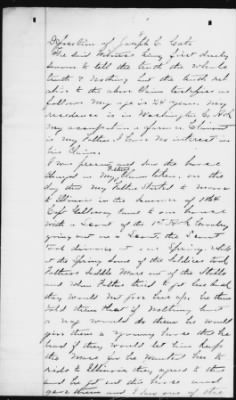 Deposition of Joseph C. Cate
The said Witness being first duly
sworn to tell the truth the whole
truth & Nothing but the truth rel
ative to the above Claim testifies as
follows My age is 24 years. My
residence is in Washington Co Ark
My occupation a farmer Claimant
is My Father I have No interest in
his Claim.
I was present and saw the horse
charged in My Father's Claim taken, on the
day that My Father started to move
to Illinois in the summer of 1864
Capt Galloway came to our house
with a scout of the 1st Ark Cavalry
going out on a scout, the scout
took dinner at our Spring. while
at the Spring some of the Soldiers took
Fathers Saddle Mare out of the Stable
and when Father tried to get her back
they would not give her up. he then
told them that if nothing but
a nag would do them he would
give them a young horse that he
had if they would let him keep
the Mare for he wanted her to
ride to Illinois they agreed to this
and he got out the horse and
gave them and I saw one of the